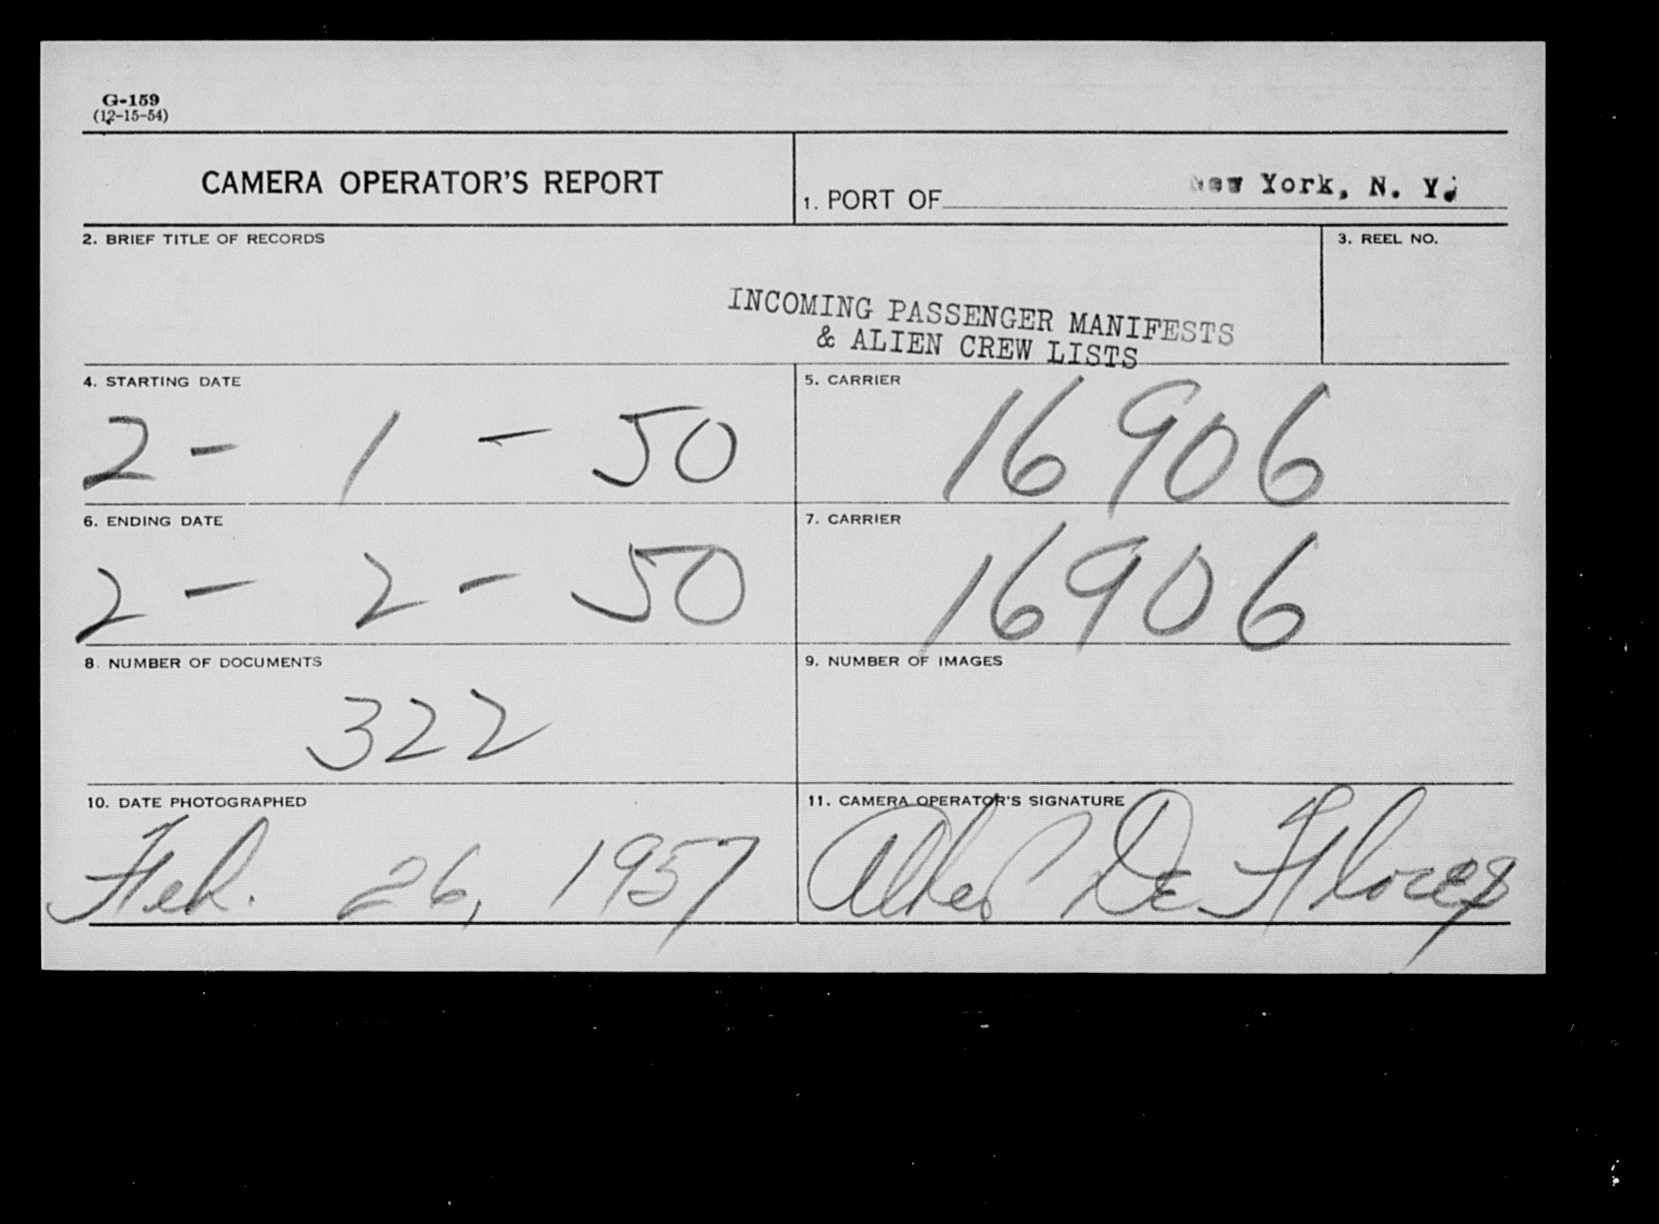 G-159
(12-15-54)
CAMERA OPERATOR'S REPORT
1. PORT OF New York, N. Y.
2. BRIEF TITLE OF RECORDS
INCOMING PASSENGER MANIFESTS
& ALIEN CREW LISTS
3. REEL NO.
4. STARTING DATE
2 - 1 - 50
5. CARRIER
16906
6. ENDING DATE
2 - 2 - 50
7. CARRIER
16906
8. NUMBER OF DOCUMENTS
322
9. NUMBER OF IMAGES
10. DATE PHOTOGRAPHED
Feb. 26, 1957
11. CAMERA OPERATOR'S SIGNATURE
De Flores